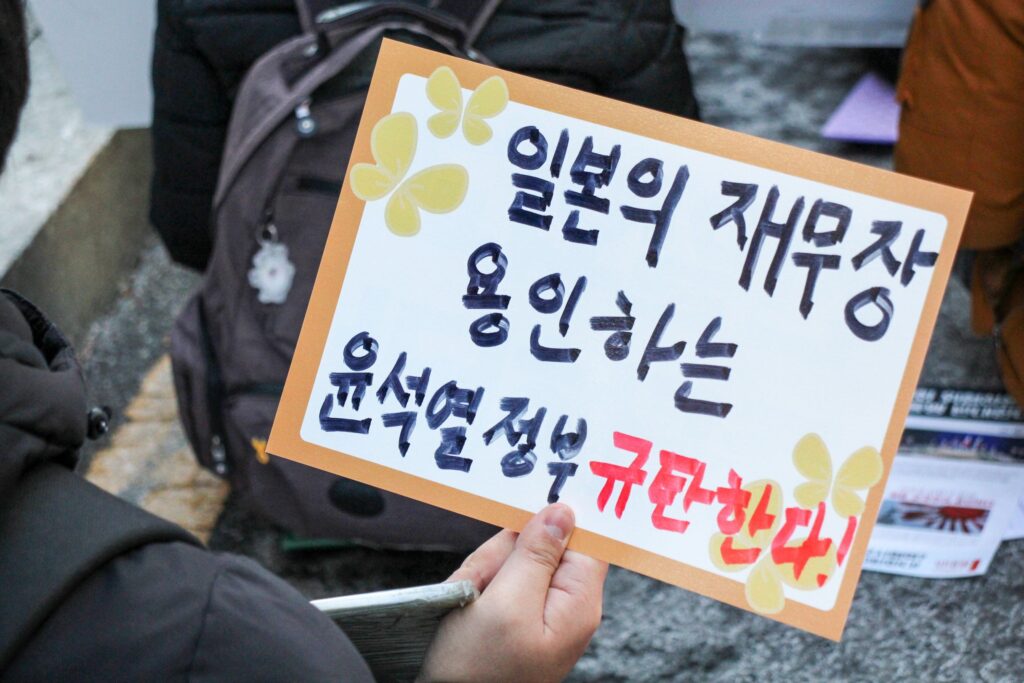 일본의 재무장
용인하는
윤석열정부 규탄한다!